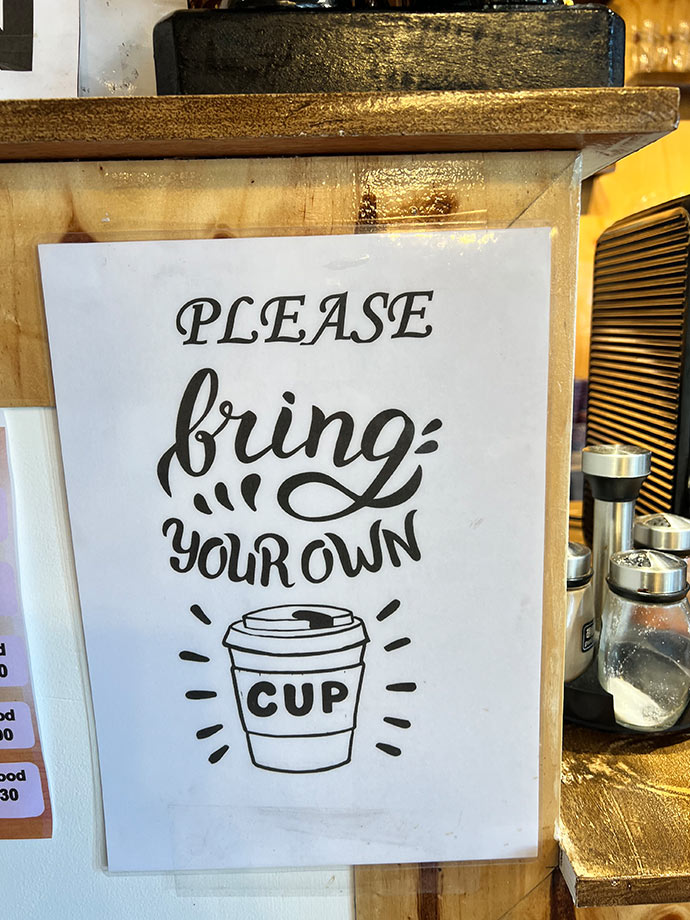 PLEASE
bring
YOUR OWN
CUP
ood
30